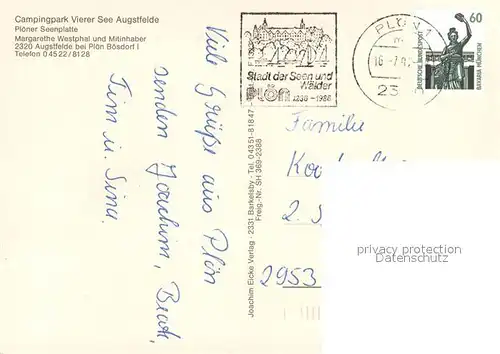 Campingpark Vierer See Augstfelde
Plöner Seenplatte
Margarethe Westphal und Mitinhaber
2320 Augstfelde bei Plön Bösdorf I
Telefon 04522/8128
Viele Grüße aus Plön
senden Joachim,
Tim u. Sina.
Joachim Eicke Verlag - 2331 Barkelsby - Tel. 04351-81847
Freig.-Nr. SH 369-2388
Stadt der Seen und
Wälder
PLÖN 1236-1986
PLÖN
23
60
DEUTSCHE BUNDESPOST
BAVARIA MÜNCHEN
Familie
2.
2953
privacy protection
Datenschutz